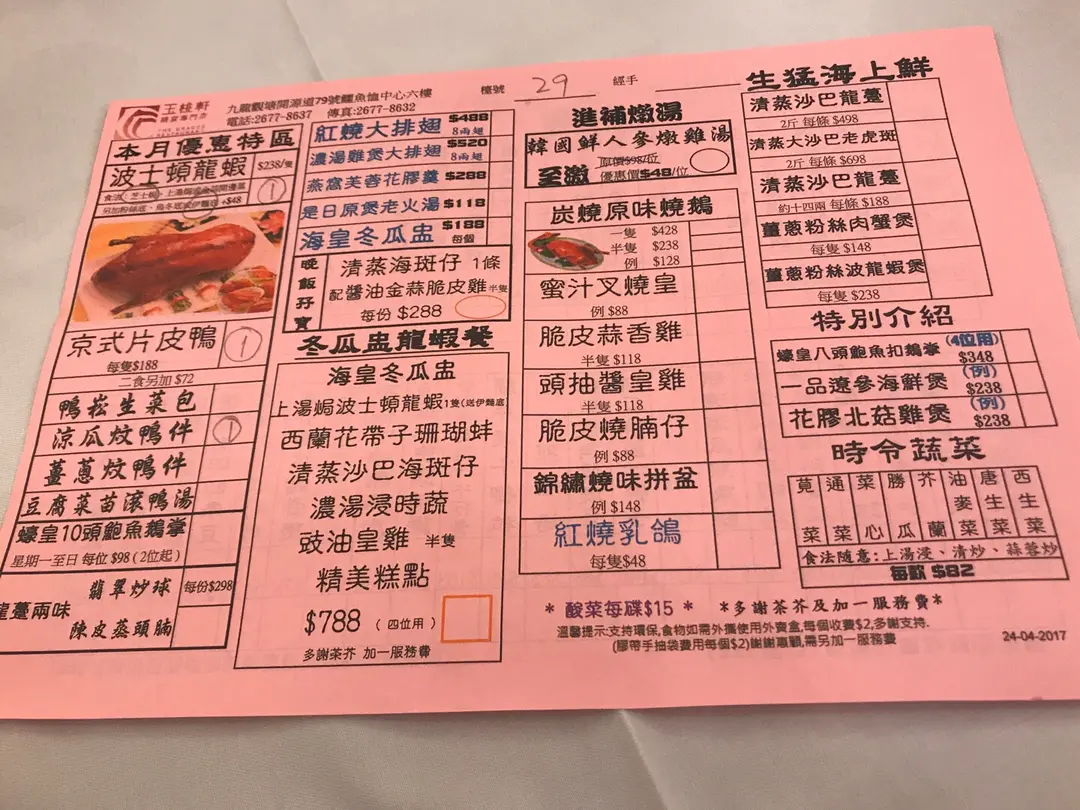 玉桃軒
九龍觀塘開源道79號鱷魚恤中心六樓
電話:2677-8637 傳真:2677-8632
檯號 29 經手
本月優惠特區
波士頓龍蝦 $238/隻 1
另加粉絲底、烏冬底或伊麵底 +$48
京式片皮鴨 1
每隻$188
二食另加 $72
鴨崧生菜包
涼瓜炆鴨件 1
薑蔥炆鴨件
豆腐菜苗滾鴨湯
蠔皇10頭鮑魚鵝掌
星期一至日 每位 $98 (2位起)
龍躉兩味
翡翠炒球 每份$298
陳皮蒸頭腩
紅燒大排翅 $488 8兩翅
濃湯雞煲大排翅 $520 8兩翅
燕窩芙蓉花膠羹 $288
是日原煲老火湯 $118
海皇冬瓜盅 $188 每個
晚飯孖寶
清蒸海斑仔 1條
配醬油金蒜脆皮雞 半隻
每份 $288
冬瓜盅龍蝦餐
海皇冬瓜盅
上湯焗波士頓龍蝦1隻(送伊麵底)
西蘭花帶子珊瑚蚌
清蒸沙巴海斑仔
濃湯浸時蔬
豉油皇雞 半隻
精美糕點
$788 (四位用)
多謝茶芥 加一服務費
進補燉湯
韓國鮮人參燉雞湯
原價$98/位
至激 優惠價$48/位
炭燒原味燒鵝
一隻 $428
半隻 $238
例 $128
蜜汁叉燒皇
例 $88
脆皮蒜香雞
半隻 $118
頭抽醬皇雞
半隻 $118
脆皮燒腩仔
例 $88
錦繡燒味拼盆
例 $148
紅燒乳鴿
每隻$48
生猛海上鮮
清蒸沙巴龍躉
2斤 每條 $498
清蒸大沙巴老虎斑
2斤 每條 $698
清蒸沙巴龍躉
約十四兩 每條 $188
薑蔥粉絲肉蟹煲
每隻 $148
薑蔥粉絲波龍蝦煲
每隻 $238
特別介紹
蠔皇八頭鮑魚扣鵝掌 (4位用) $348
一品遼參海鮮煲 (例) $238
花膠北菇雞煲 (例) $238
時令蔬菜
莧菜 通菜 菜心 勝瓜 芥蘭 油麥菜 唐生菜 西生菜
食法隨意:上湯浸、清炒、蒜蓉炒
每款 $82
* 酸菜每碟$15 * *多謝茶芥及加一服務費*
溫馨提示:支持環保,食物如需外攜使用外賣盒,每個收費$2,多謝支持.
(膠帶手抽袋費用每個$2)謝謝惠顧,需另加一服務費
24-04-2017